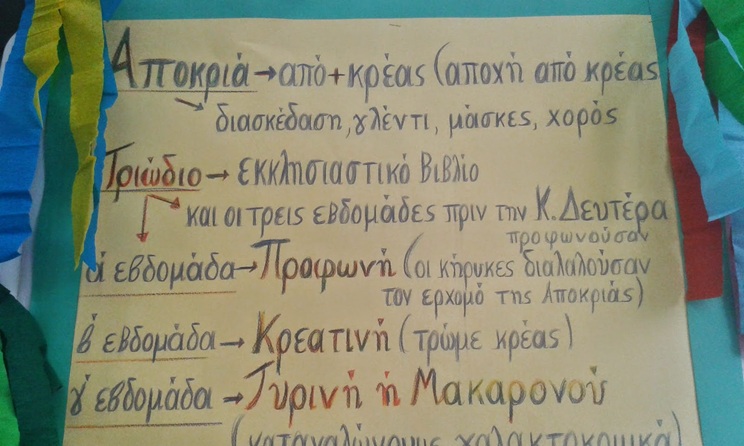 Αποκριά → από + κρέας (αποχή από κρέας
διασκέδαση, γλέντι, μάσκες, χορός
Τριώδιο → εκκλησιαστικό βιβλίο
και οι τρεις εβδομάδες πριν την Κ. Δευτέρα
προφωνούσαν
ά εβδομάδα → Προφωνή (οι κήρυκες διαλαλούσαν
τον ερχομό της Αποκριάς)
β' εβδομάδα → Κρεατινή (τρώμε κρέας)
γ' εβδομάδα → Τυρινή ή Μακαρονού
(καταναλώνουμε γαλακτοκομικά)